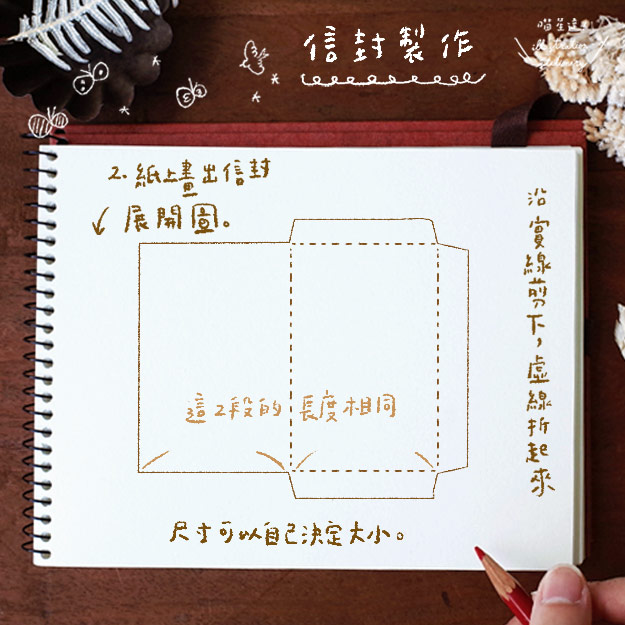 信封製作
喵星這邊
2. 紙上畫出信封
展開圖。
沿實線剪下，虛線折起來
這2段的長度相同
尺寸可以自己決定大小。